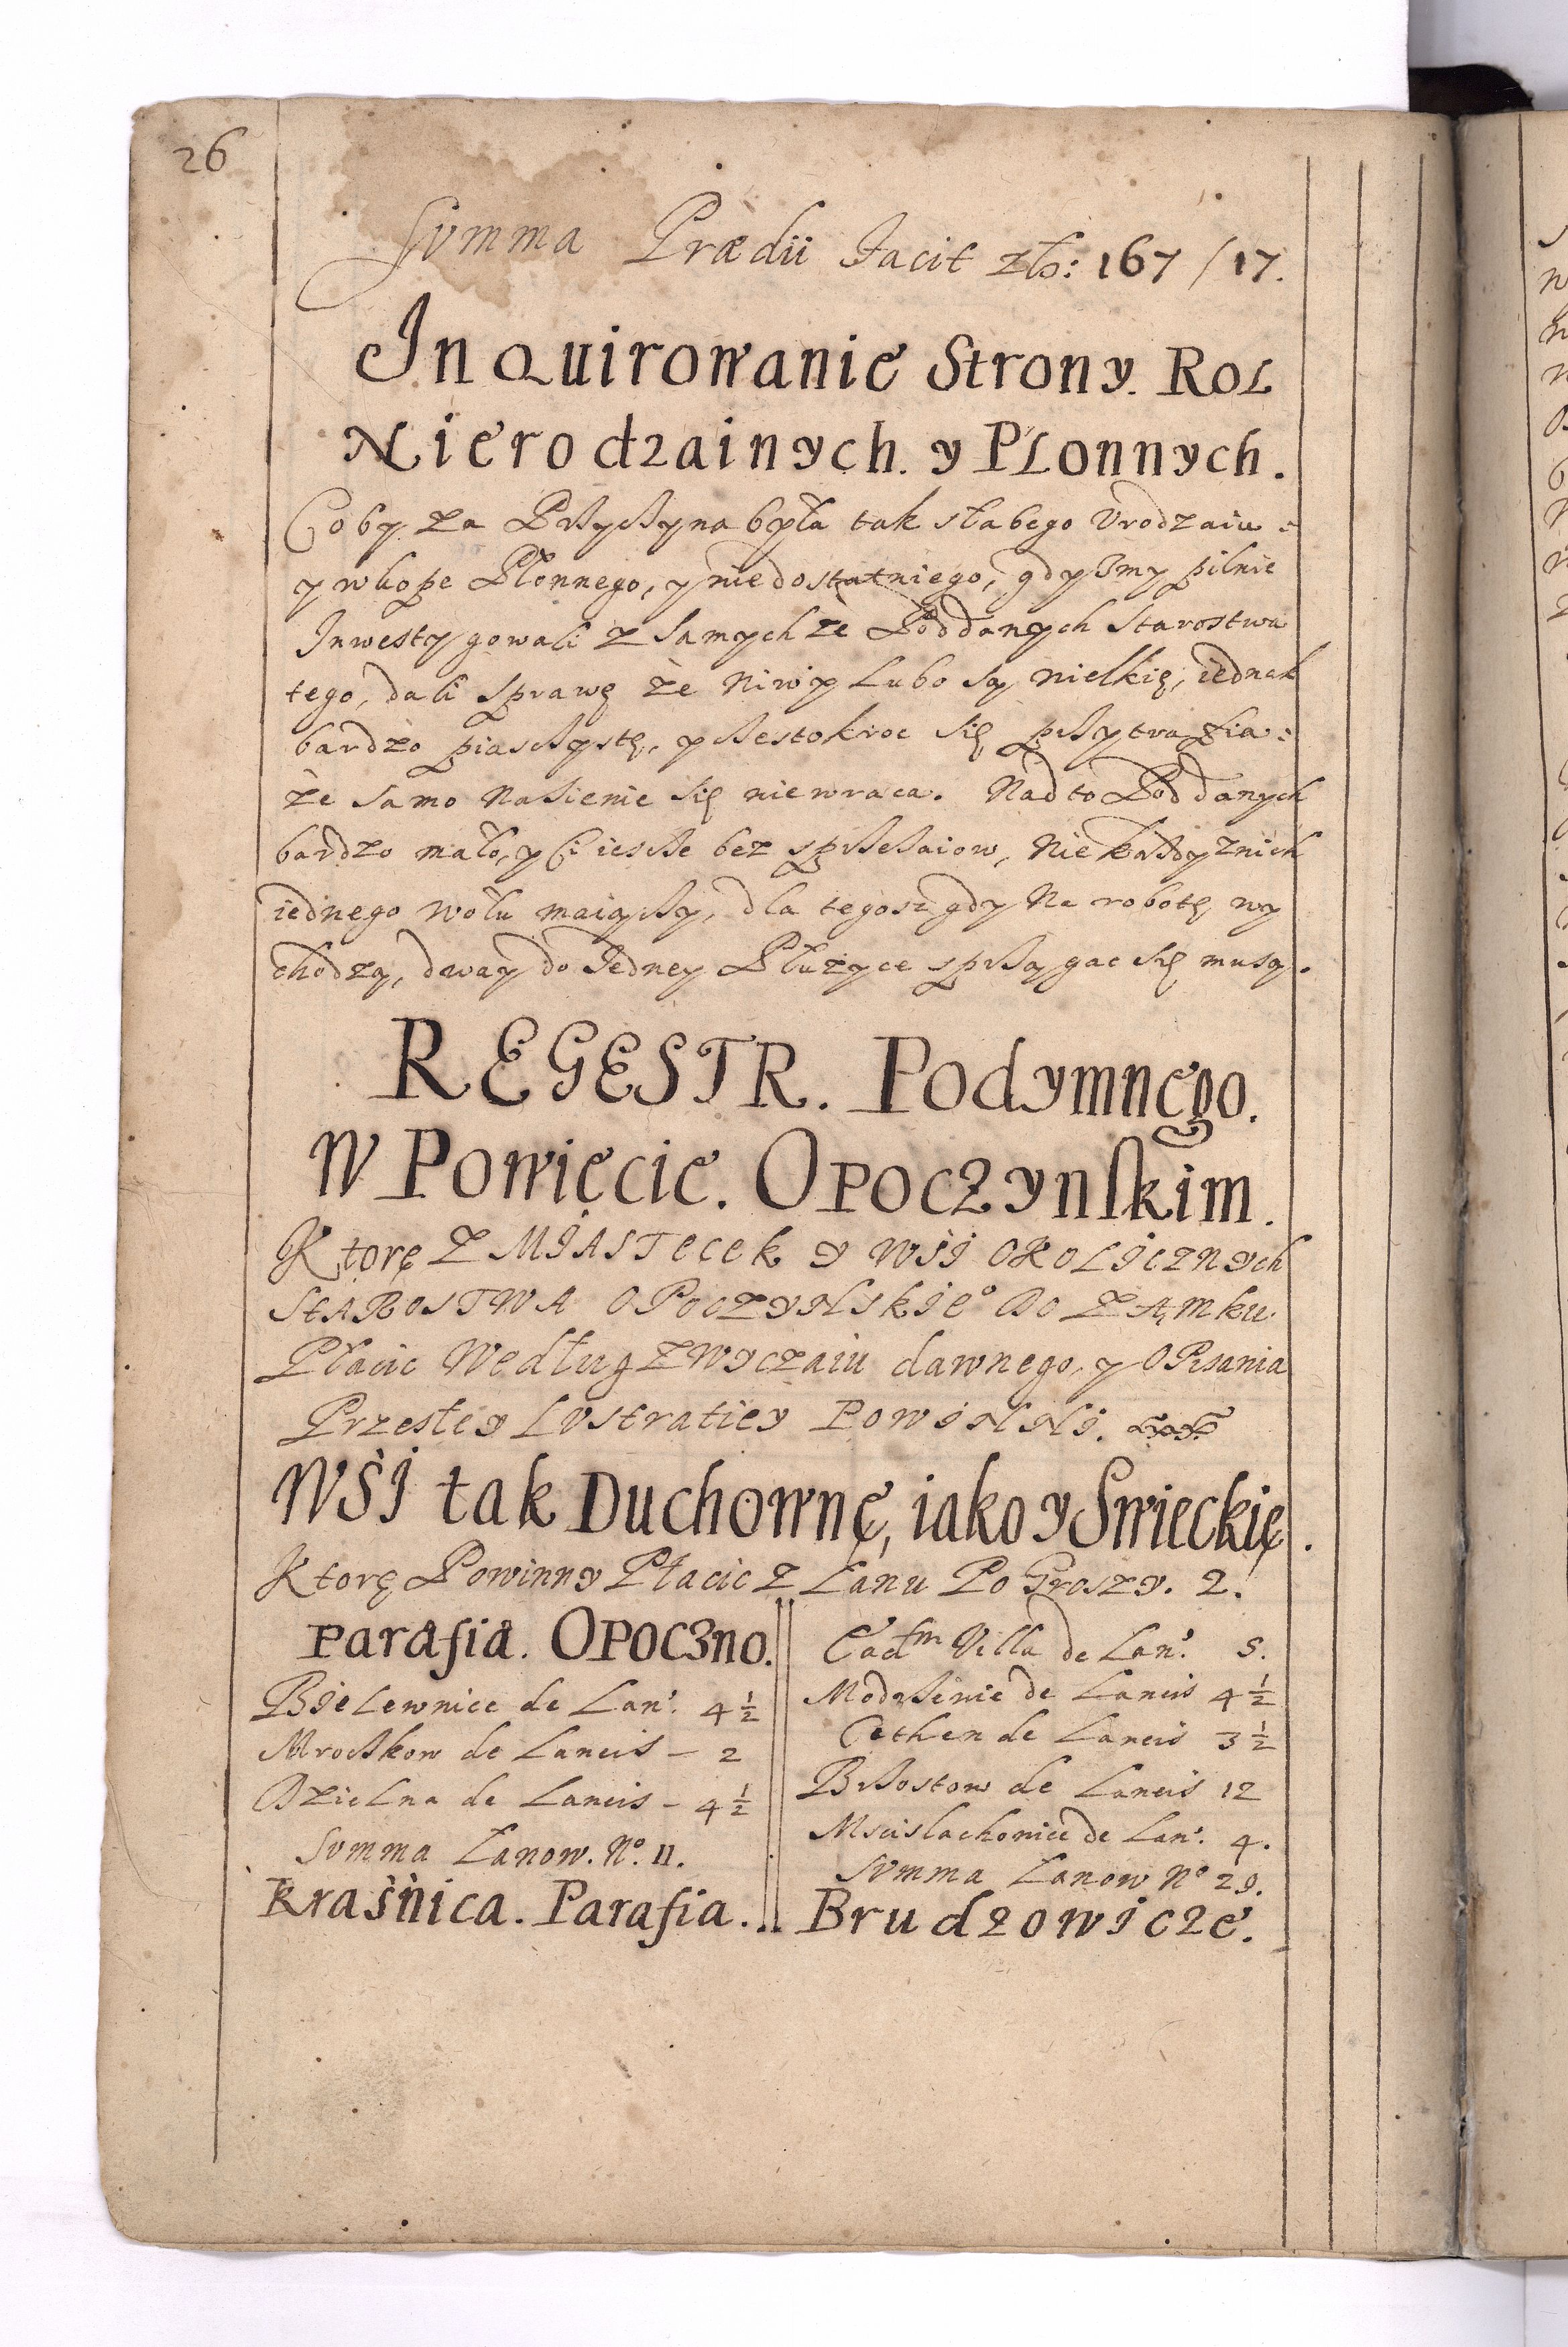 26
Summa Prædii Facit złо: 167 / 17.
InQuirowanie Strony. Rol
Nierodzainych. y Plonnych.
Coby za Przyczyna była tak słabego Urodzaiu
y wkope Płonnego, y niedostatniego, gdysmy pilnie
Inwestygowali z samychże Poddanych Starostwa
tego, dali sprawę że Niwy Lubo są wielkię, iednak
bardzo piasczystę, y czestokroc się przytrafia:
że samo Nasienie się niewraca. Nadto Poddanych
bardzo mało, y Ci ieszcze bez sprzezaiow, Nie každy z nich
iednego wołu maiączy, dla tegosz gdy Na robotę wy
chodzą, dway do Jedney Płużyce sprzągac się muszą.
REGESTR. Podymnego.
W Powięcie. Opoczynskim.
Ktorę z MIASTECEK y WSI OKOLICZNych
STAROSTWA OPOCZYNSKIEº DO ZAMku.
Płacic Według ZWyczaiu dawnego, y OPisania
Przesłey Lustratiey POWINNI.
WSI tak Duchownę, iako y Swieckię.
Ktorę Powinny Płacic z Łanu Po Groszy. 2.
Parafia. OPOCZno.
Bielewnice de Lan: 4 1/2
Mroczkow de Laneis - 2
Dzielna de Laneis - 4 1/2
Summa Łanow. Nº. 11.
Kraśnica. Parafia.
Eadm Villa de Lan: 5.
Modrzewie de Laneis 4 1/2
Cethen de Laneis 3 1/2
Brzostow de Laneis 12
Mscislachowice de Lan: 4.
Summa Łanow Nº 29.
Brudzowicze.